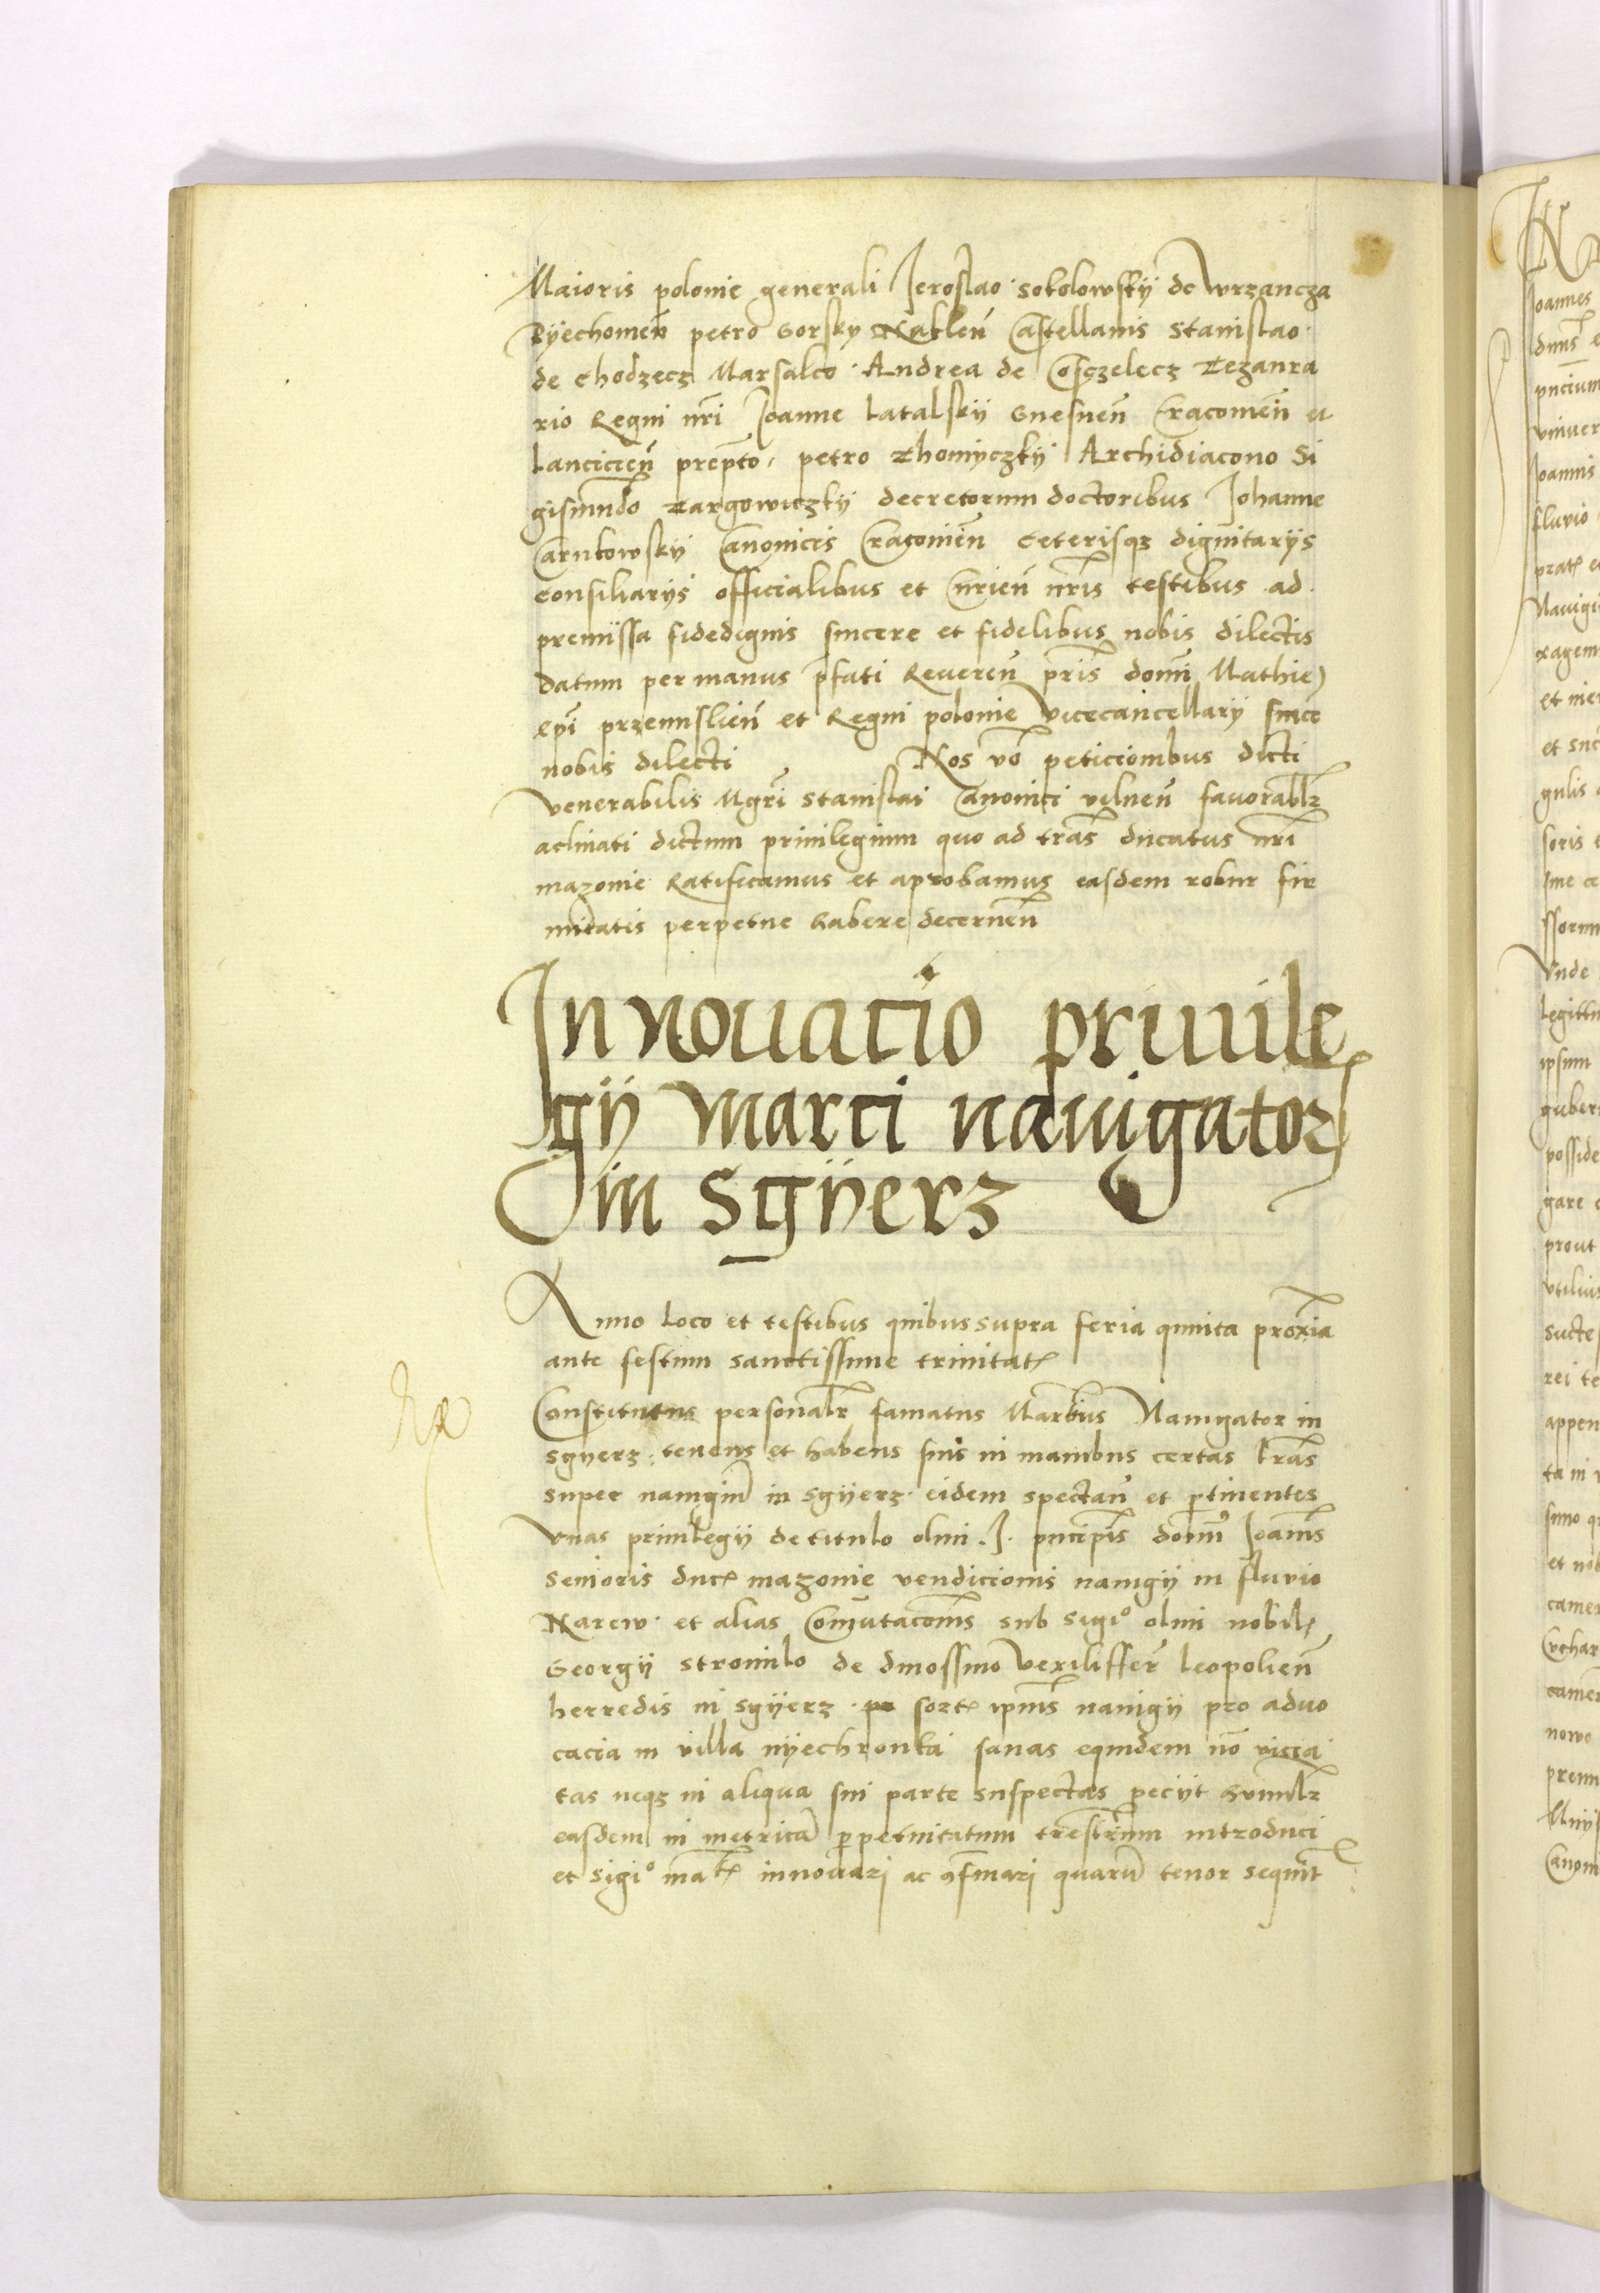 Maioris polonie generali Jeroslao sokolowskij de wrzancza
Byechomen̄ petro Gorsky Naklen̄ Castellanis Stanislao
de Chodzecz Marsalco Andrea de Cosczelecz Tezaura
rio Regni nr̄i Joanne Latalskij Gnesnen̄ Cracouien̄ et
Lancicien̄ prep̄to petro Thomyczkij Archidiacono Si
gismundo Targowiczkij decretorum doctoribus Johanne
Carnkowskij Canonicis Cracouien̄ Ceterisqz dignitarijs
consiliarijs officialibus et Curien̄ nr̄is testibus ad
premissa fidedignis sincere et fidelibus nobis dilectis
Datum per manus p̄fati Reueren̄ pr̄is domī Mathie
Ep̄i przemislien̄ et Regni polonie Vicecancellarij since
nobis dilecti Nos vo peticionibus dicti
venerabilis Mgr̄i Stanislai Canonici vilnen̄ fauorabl̄r
aclinati dictum priuilegium quo ad tr̄as ducatus nr̄i
mazouie Ratificamus et aprobamus easdem robur fir
mitatis perpetue habere decernen̄
Innouatio priuile
gij marci nauigatorꝭ
in Sgijerz
Anno Loco et testibus quibus supra feria quinta proxīa
ante festum sanctissime trinitatꝭ
Constitutus personalr̄ famatus Markus Nauigator in
Sgyerz tenens et habens suis in manibus certas lr̄as
super nauigiū in Sgijerz eidem spectan̄ et ꝑtinentes
Vnas priuilegij de titulo olim .J. pncip̄is domī Joan̄is
senioris ducꝭ mazouie vendicionis nauigij in fluuio
Narew et alias Com̄utacōnis sub sigiº olim nobilꝭ
Georgij stromilo de dmossino vexilliffer̄ Leopolien̄
herredis in Sgijerz sortꝭ ip̄ius nauigij pro aduo
cacia in villa nyechronka sanas equidem nō vicia
tas neqz in aliqua sui parte suspectas pecijt humilr̄
easdem in metricā ꝑpetuitatum tr̄estrium introduci
et sigiº mālꝭ innouari ac ꝯfirmari quarū tenor sequit̄